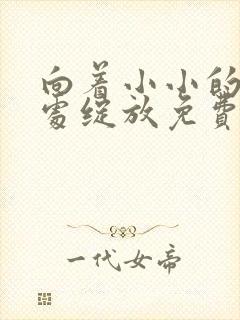 向着小小的
处绽放免费
一代女帝